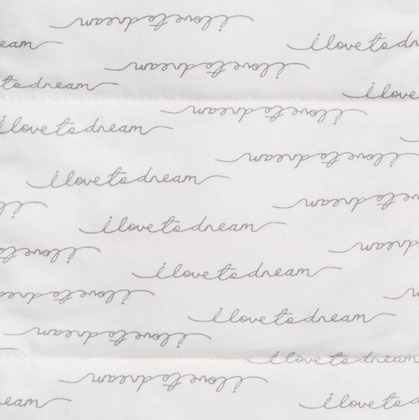 i love to dream
i love to dr
eam
i love to dream
to dream
i love
i love to dream
i love to dream
i love to d
i love to dream
i love to
i love to dream
i love to dream
i love to dream
i love to dream
i love to dream
i love to dream
i love to dream
eam
i love to